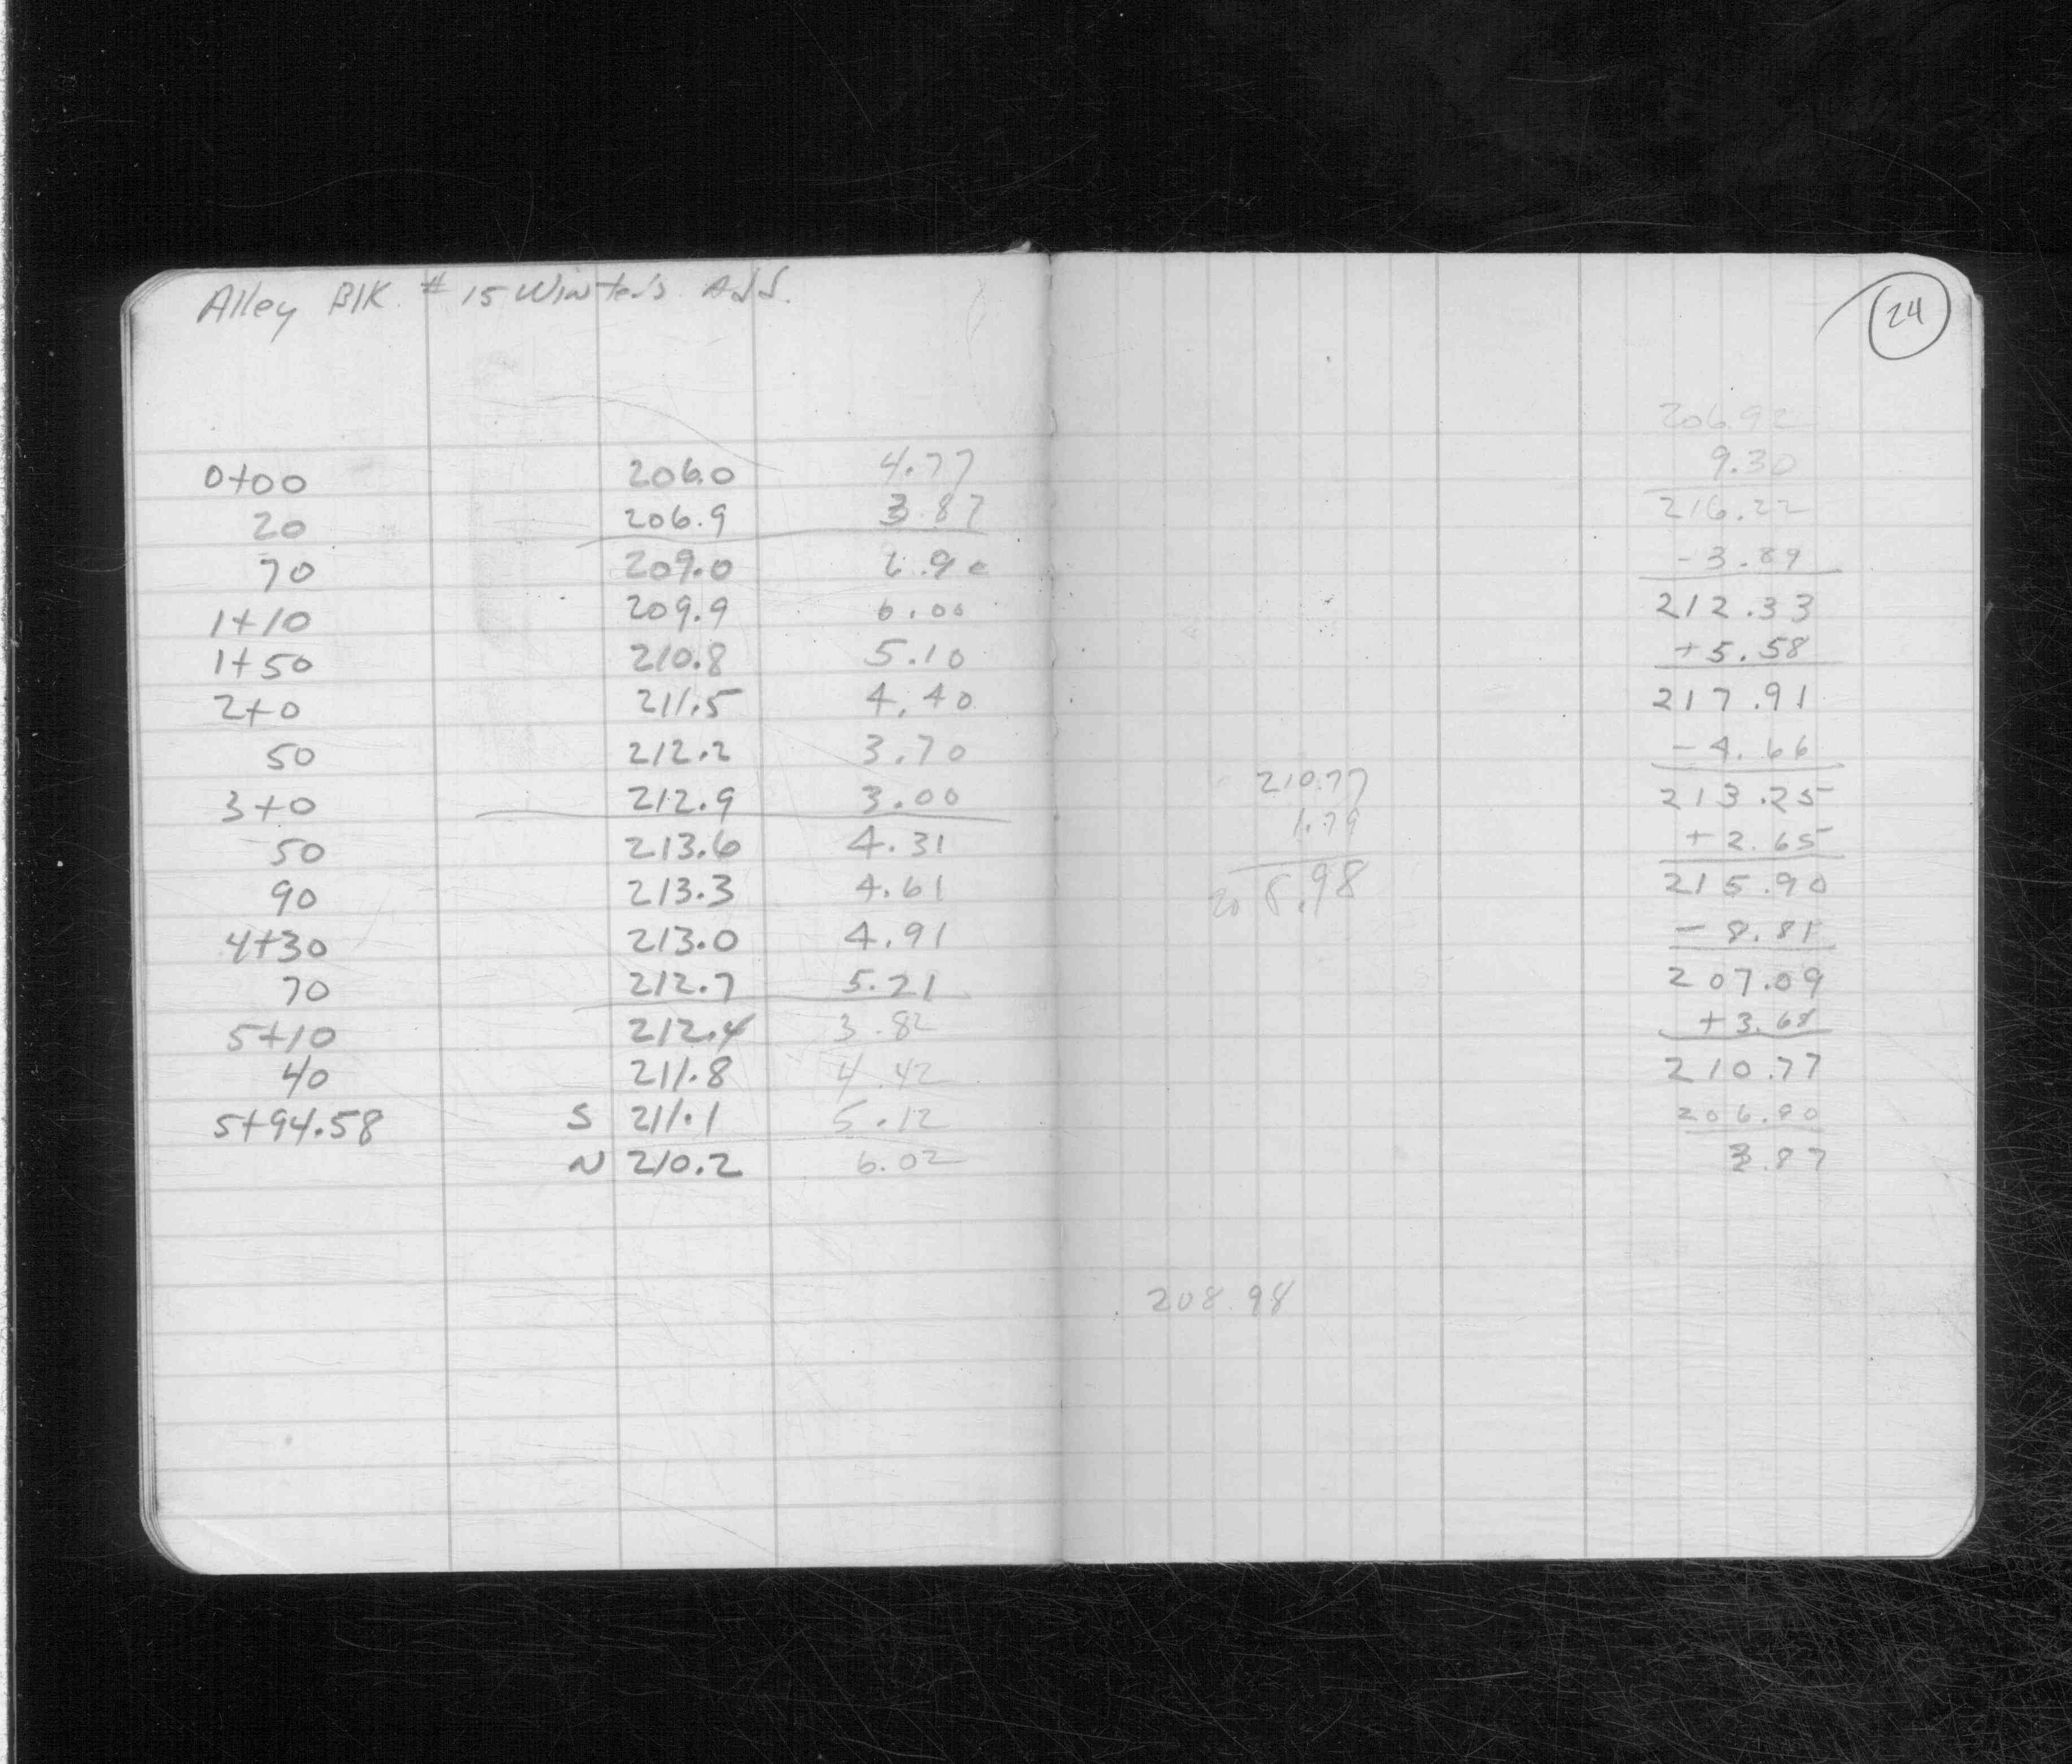 Alley Blk. # 15 Winters Add.
0+00 206.0 4.77
20 206.9 3.87
70 209.0 6.90
1+10 209.9 6.00
1+50 210.8 5.10
2+0 211.5 4.40
50 212.2 3.70
3+0 212.9 3.00
50 213.6 4.31
90 213.3 4.61
4+30 213.0 4.91
70 212.7 5.21
5+10 212.4 3.82
40 211.8 4.42
5+94.58 S 211.1 5.12
N 210.2 6.02
24
210.77
1.79
208.98
208.98
206.92
9.30
216.22
- 3.89
212.33
+ 5.58
217.91
- 4.66
213.25
+ 2.65
215.90
- 8.81
207.09
+ 3.68
210.77
206.90
3.87